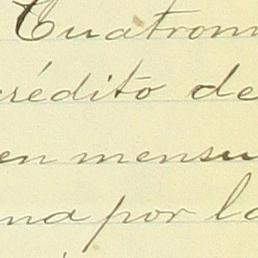 Cuatrom
crédito de
en mensu
na por la